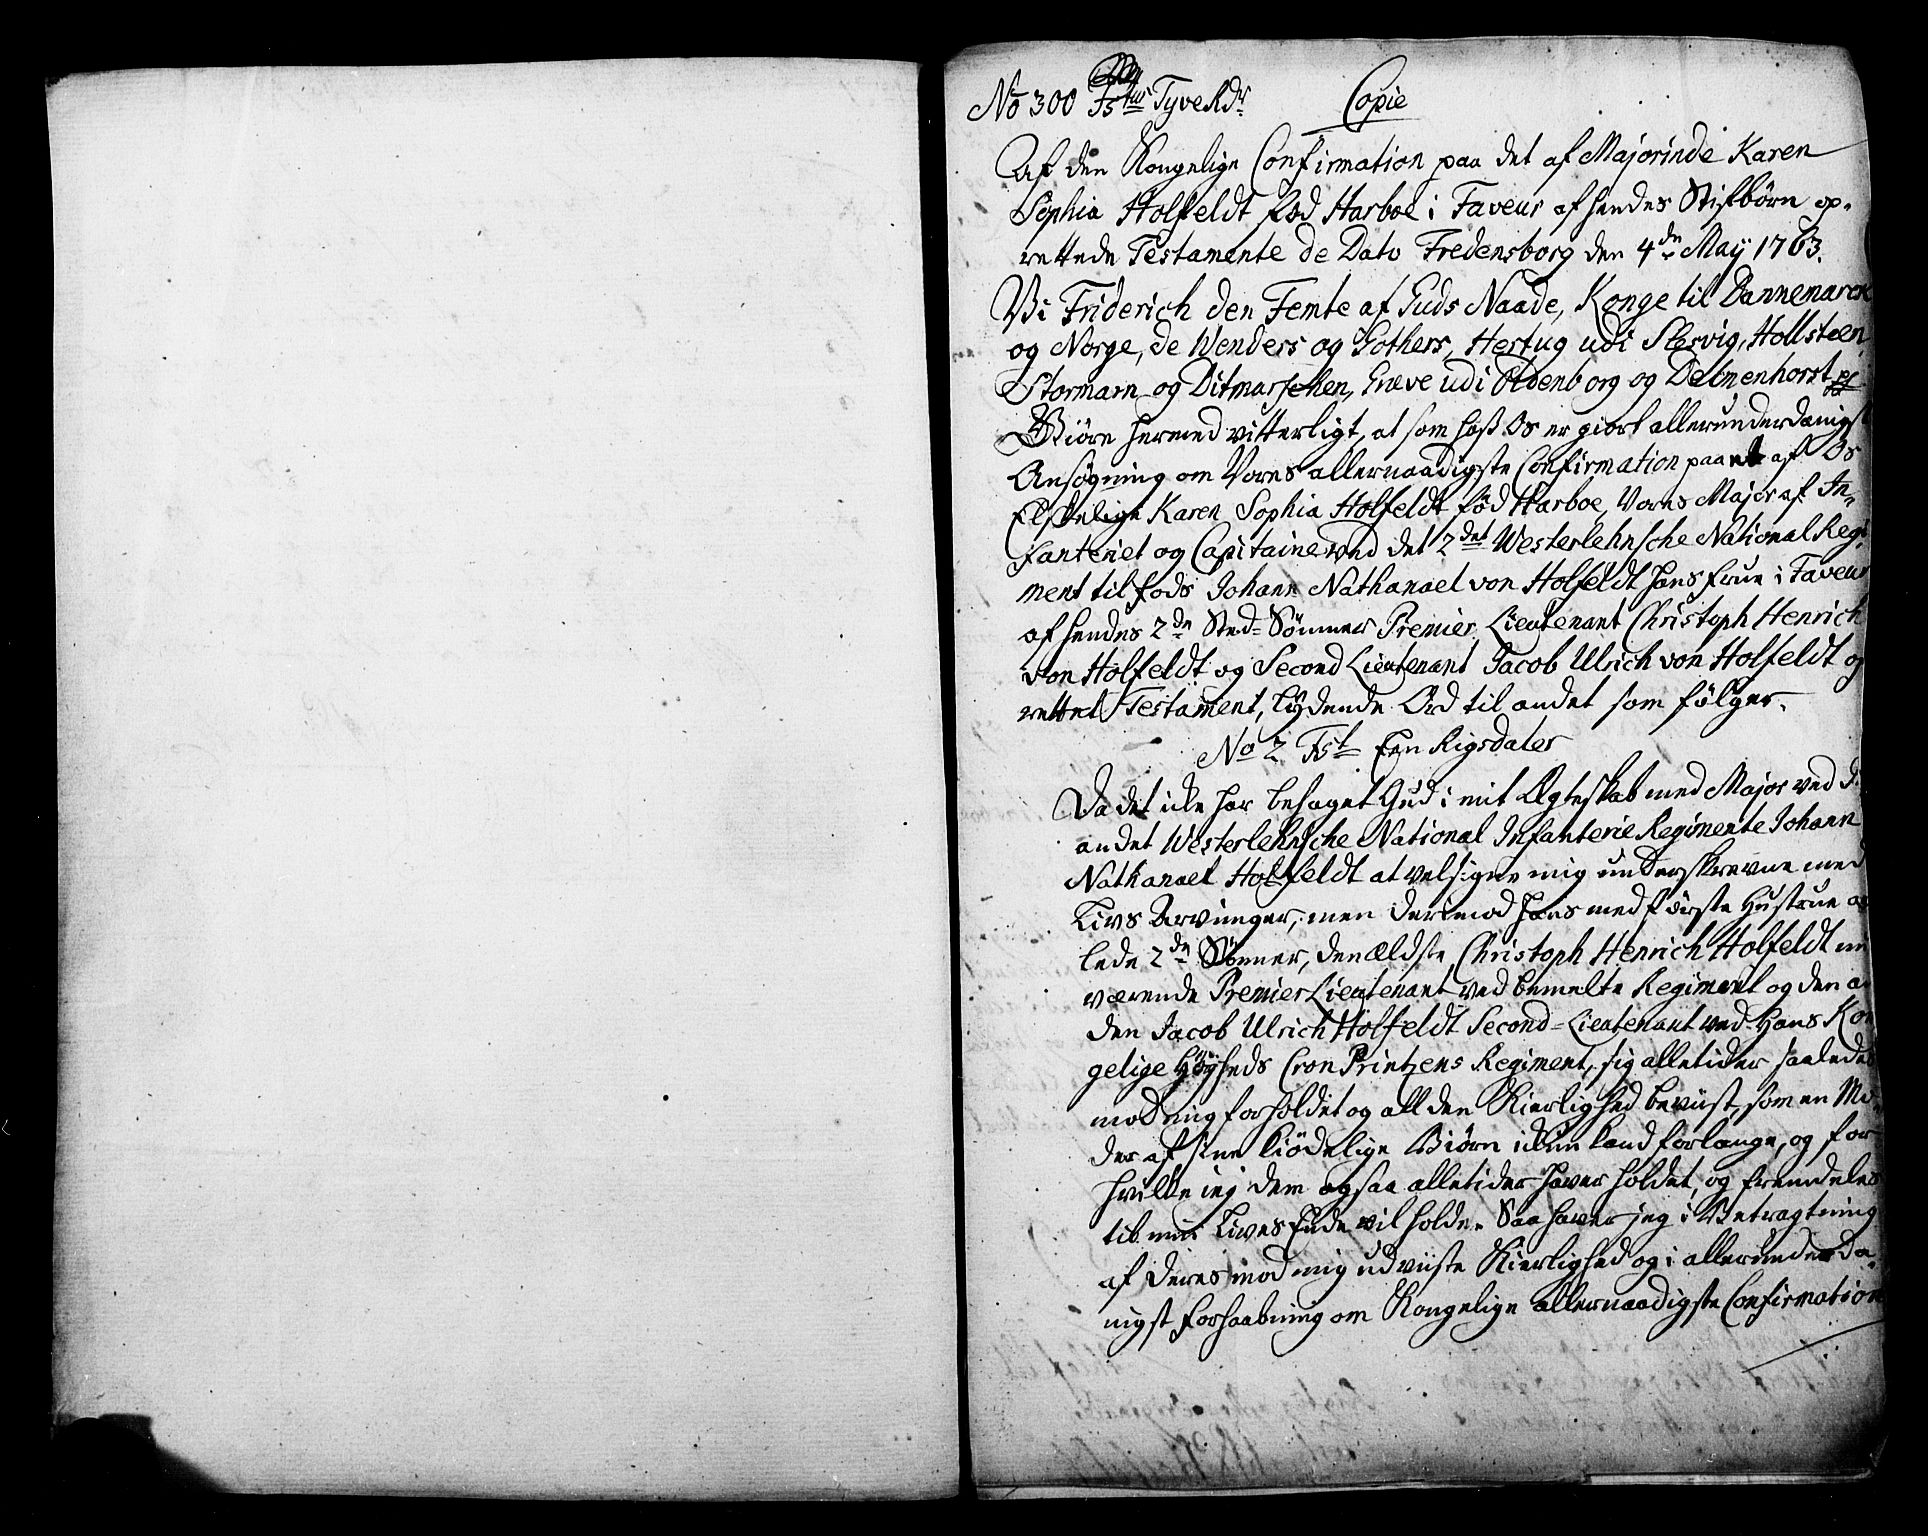 No 300 Tyve Rdr Copie
Af den Kongelige Confirmation paa det af Majorinde Karen
Sophia Holfeldt fød Harboe i Faveur af hendes Stifbørn op-
rettede Testamente de Dato Fredensborg den 4de May 1763.
Vi Friderich den Femte af Guds Naade, Konge til Dannemarck
og Norge, de Wenders og Gothers, Hertug udi Slesvig, Hollsteen,
Stormarn og Ditmarschen, Greve udi Oldenborg og Delmenhorst pp
Giøre hermed vitterligt, at som hoß Os er giort allerunderdanigst
Ansøgning om Vores allernaadigste Confirmation paa et af Os
Elskelige Karen Sophia Holfeldt fød Harboe, Vores Major af In-
fanteriet og Capitaine ved det 2det Westerlehnsche National Regi-
ment til fods Johann Nathanael von Holfeldt hans frue i Faveur
af hendes 2de Sted-Sønner Premier Lieutenant Christoph Henrich
von Holfeldt og Second Lieutenant Jacob Ulrich von Holfeldt op
rettet Testament, lydende Ord til andet som følger.
No 2 Een Rigsdaler
Da det icke har behaget Gud i mit Ægteskab med Major ved d.
andet Westerlehnsche National Infanterie Regimente Johann
Nathanael Holfeldt at velsigne mig underskrevne med
Livs Arvinger, men derimod hans med første Hustrue av
lede 2de Sønner, den ældste Christoph Henrich Holfeldt nu
værende Premier Lieutenant ved bemelte Regiment og den an
den Jacob Ulrich Holfeldt Second-Lieutenant ved Hans Kon
gelige Høyheds Cron Printzens Regiment, sig alletider saaledes
mod mig forholdet og all den Kierlighed beviist, som en Mo-
der af sine kiødelige Børn kand forlange, og for
hvilke jeg dem ogsaa alletider haver holdet, og fremdeles
til min Lives Ende vil holde. Saa haver jeg i Betragtning
af deres mod mig udviiste Kierlighed og i allerunderda-
nigst forhaabning om Kongelige allernaadigste Confirmation